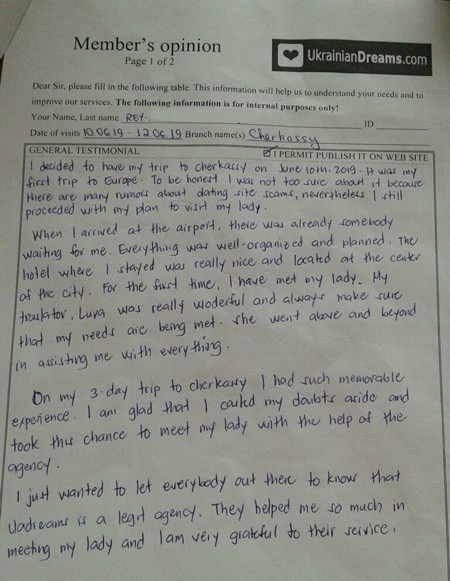 Member's opinion
Page 1 of 2
UkrainianDreams.com
Dear Sir, please fill in the following table. This information will help us to understand your needs and to
improve our services. The following information is for internal purposes only!
Your Name, Last name REY ID
Date of visits 10.06.19 - 12.06.19 Branch name(s) Cherkassy
GENERAL TESTIMONIAL ☑ I PERMIT PUBLISH IT ON WEB SITE
I decided to have my trip to cherkassy on June 10th. 2019. It was my
first trip to Europe. To be honest I was not too sure about it because
there are many rumors about dating site scams, nevertheless I still
proceeded with my plan to visit my lady.
When I arrived at the airport, there was already somebody
waiting for me. Everything was well-organized and planned. The
hotel where I stayed was really nice and located at the center
of the city. For the first time, I have met my lady. My
translator, was really woderful and always make sure
that my needs are being met. She went above and beyond
in assisting me with everything.
On my 3-day trip to cherkassy I had such memorable
experience. I am glad that I my doubts aside and
took this chance to meet my lady with the help of the
agency.
I just wanted to let everybody out there to know that
Uadreams is a legit agency. They helped me so much in
meeting my lady and I am very grateful to their service.